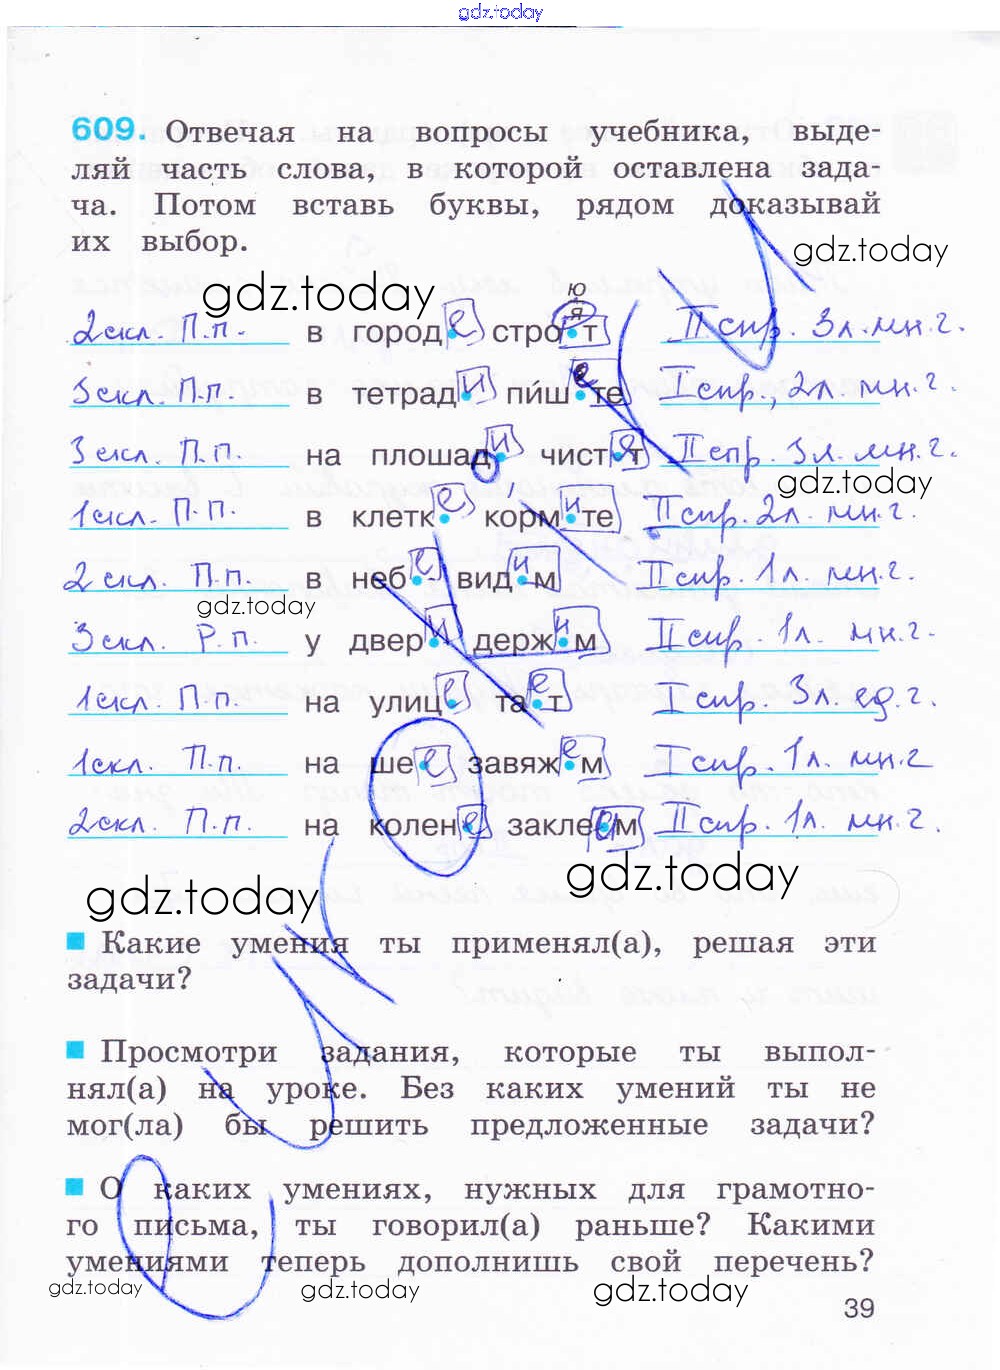 gdz.today
609. Отвечая на вопросы учебника, выде-
ляй часть слова, в которой оставлена зада-
ча. Потом вставь буквы, рядом доказывай
их выбор.
gdz.today
gdz.today
2скл. П.п. в городе строят II спр. 3л. мн. г.
ю
3скл. П.п. в тетради пишете I спр., 2л. мн. г.
3скл. П.п. на площади чистят II спр. 3л. мн. г.
gdz.today
1скл. П.п. в клетке кормите II спр. 2л. мн. г.
2скл. П.п. в небе видим II спр. 1л. мн. г.
gdz.today
3скл. Р.п. у двери держим II спр. 1л. мн. г.
1скл. П.п. на улице тает I спр. 3л. ед. г.
1скл. П.п. на шее завяжем I спр. 1л. мн. г
2скл. П.п. на колене заклеем II спр. 1л. мн. г.
gdz.today
gdz.today
Какие умения ты применял(а), решая эти
задачи?
Просмотри задания, которые ты выпол-
нял(а) на уроке. Без каких умений ты не
мог(ла) бы решить предложенные задачи?
О каких умениях, нужных для грамотно-
го письма, ты говорил(а) раньше? Какими
умениями теперь дополнишь свой перечень?
gdz.today
gdz.today
gdz.today
39